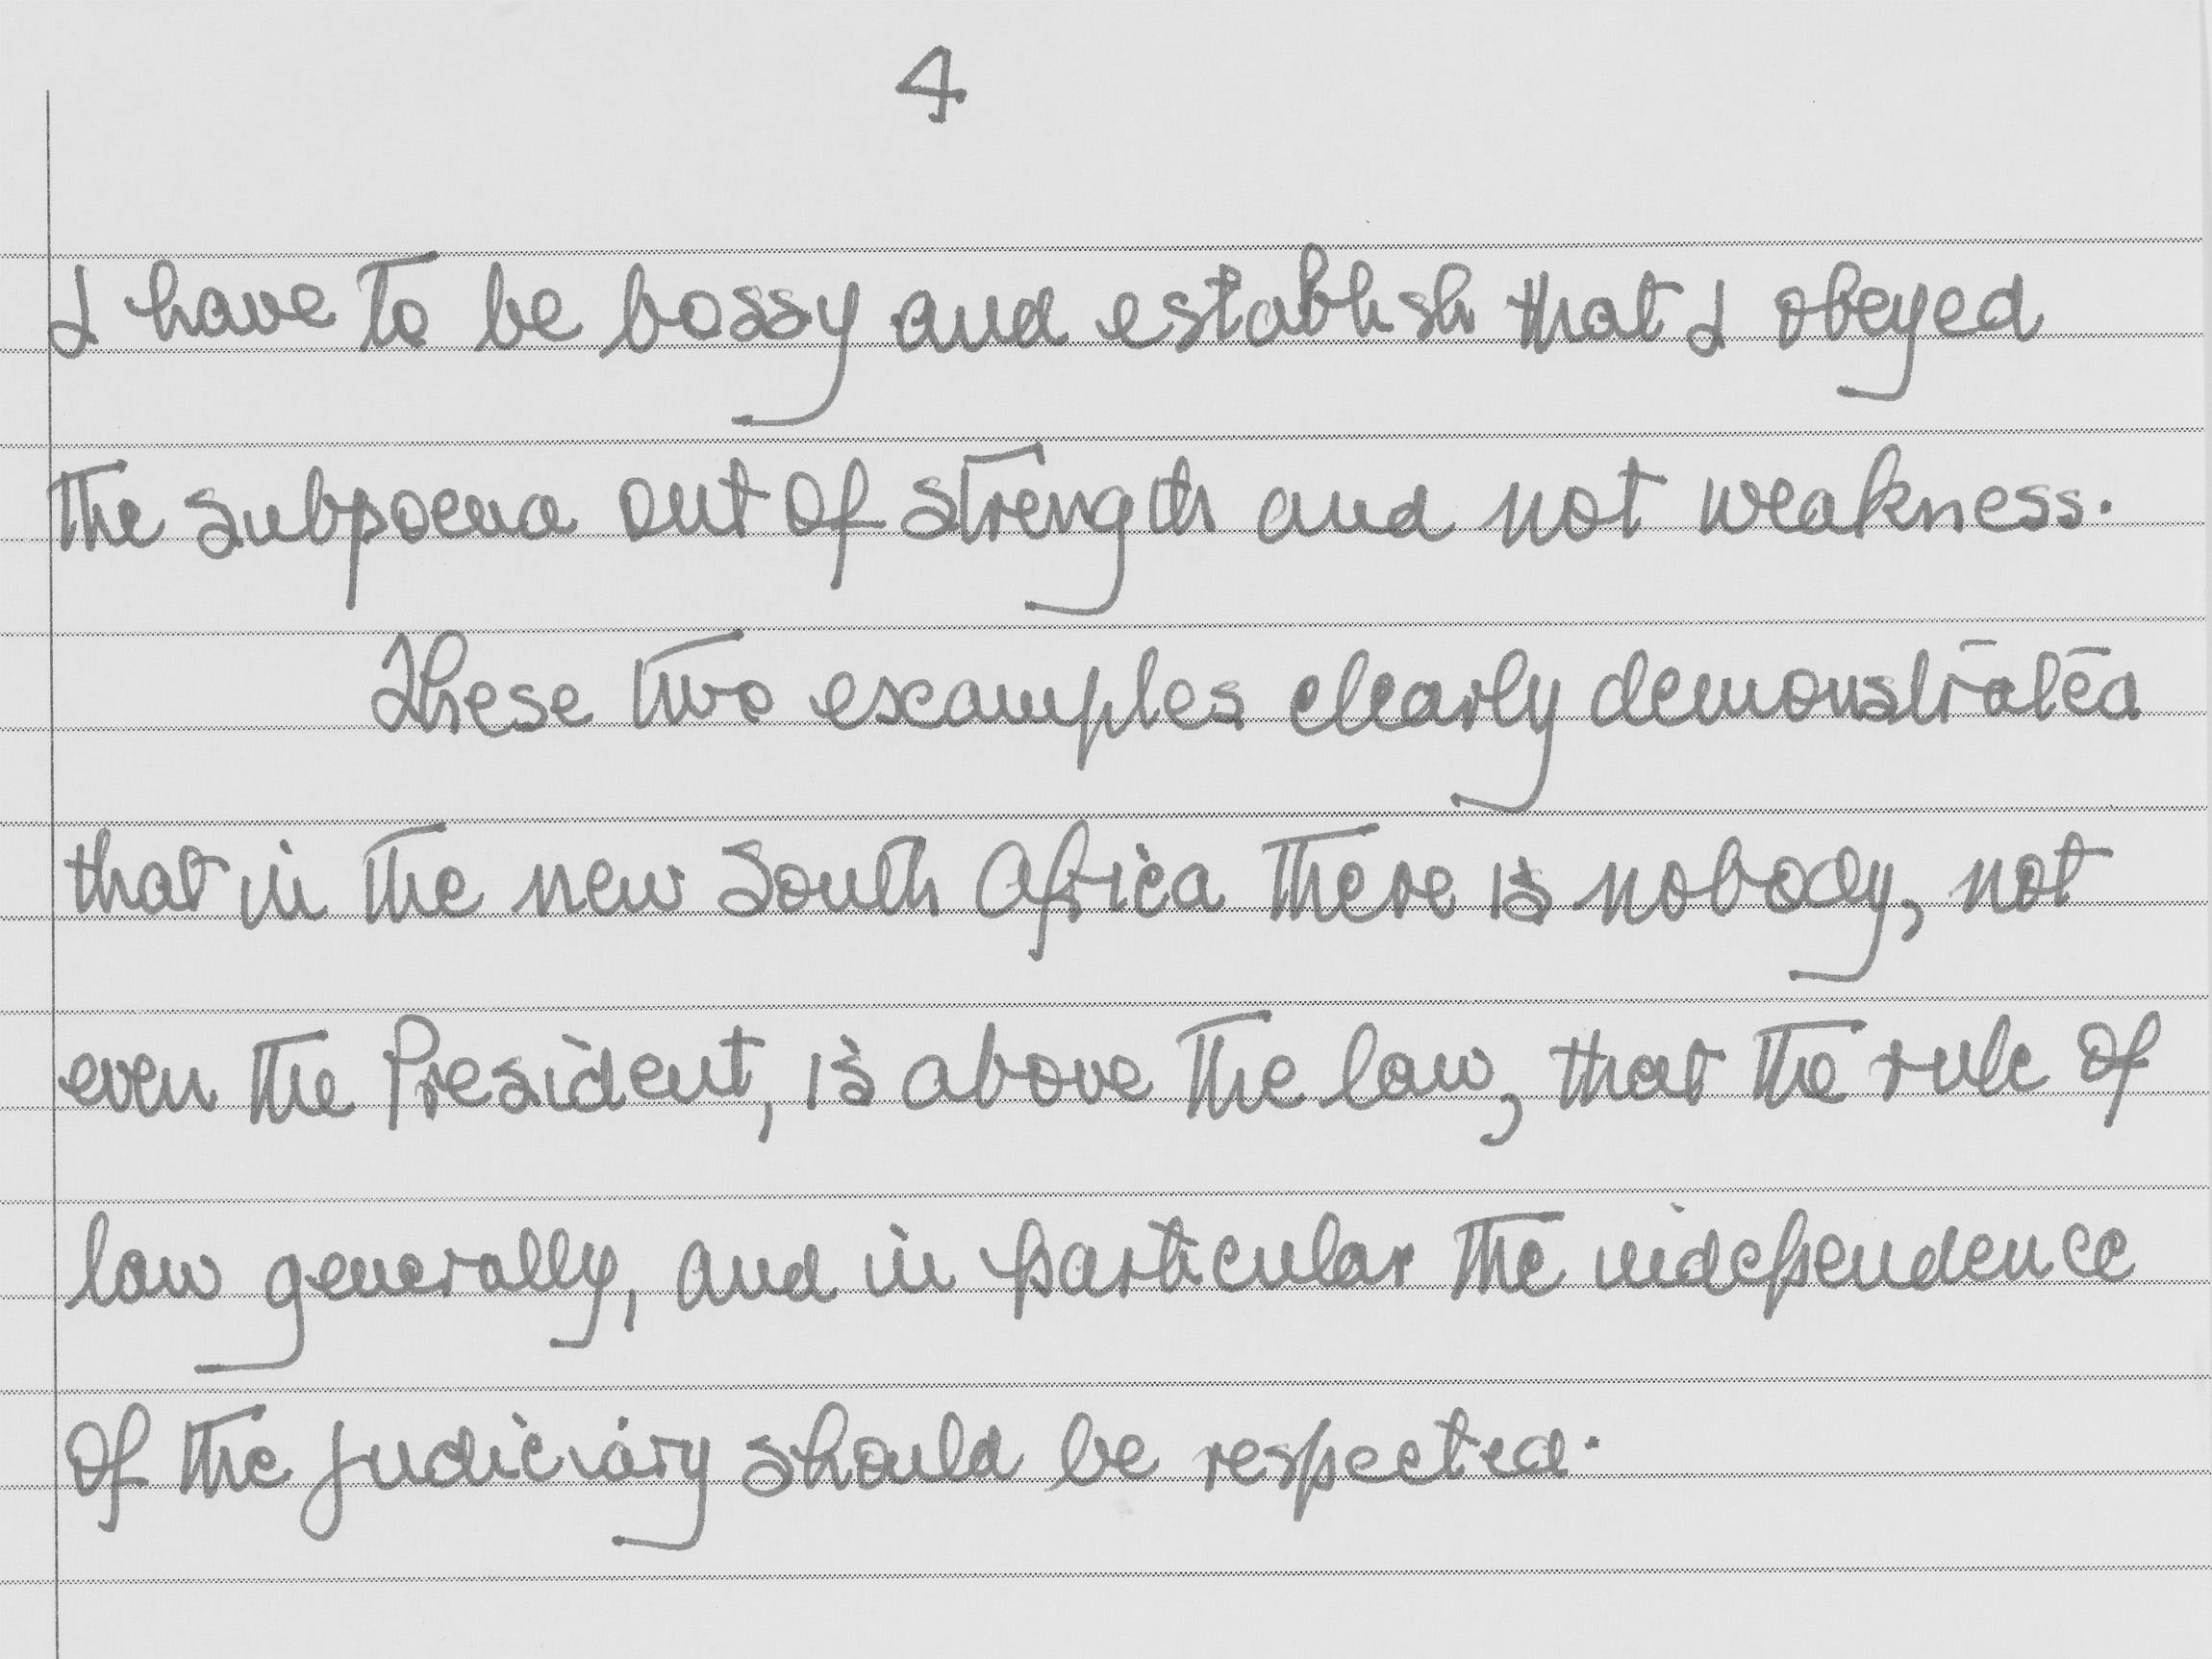 4
I have to be bossy and establish that I obeyed
the subpoena out of strength and not weakness.
These two examples clearly demonstrated
that in the new South Africa there is nobody, not
even the President, is above the law, that the rule of
law generally, and in particular the independence
of the judiciary should be respected.